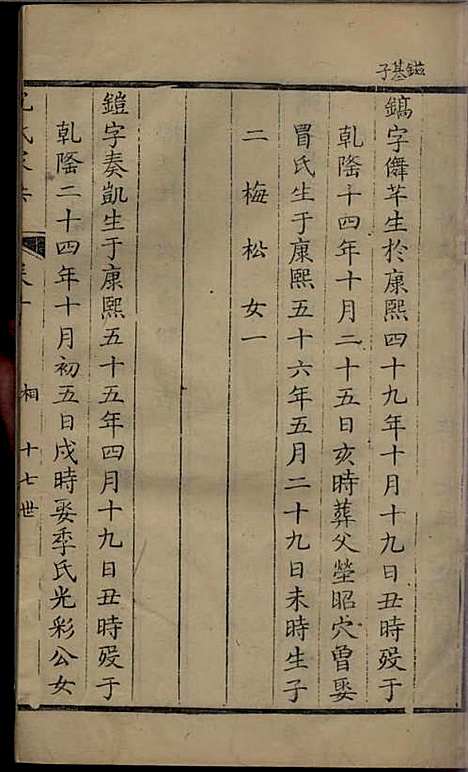 鎡基子
鎬字儛芊生於康熙四十九年十月十九日丑時歿于
乾隆十四年十月二十五日亥時葬父塋昭穴曾娶
冒氏生于康熙五十六年五月二十九日未時生子
二梅松女一
鎧字奏凱生于康熙五十五年四月十九日丑時歿于
乾隆二十四年十月初五日戌時娶季氏光彩公女
桐 十七世